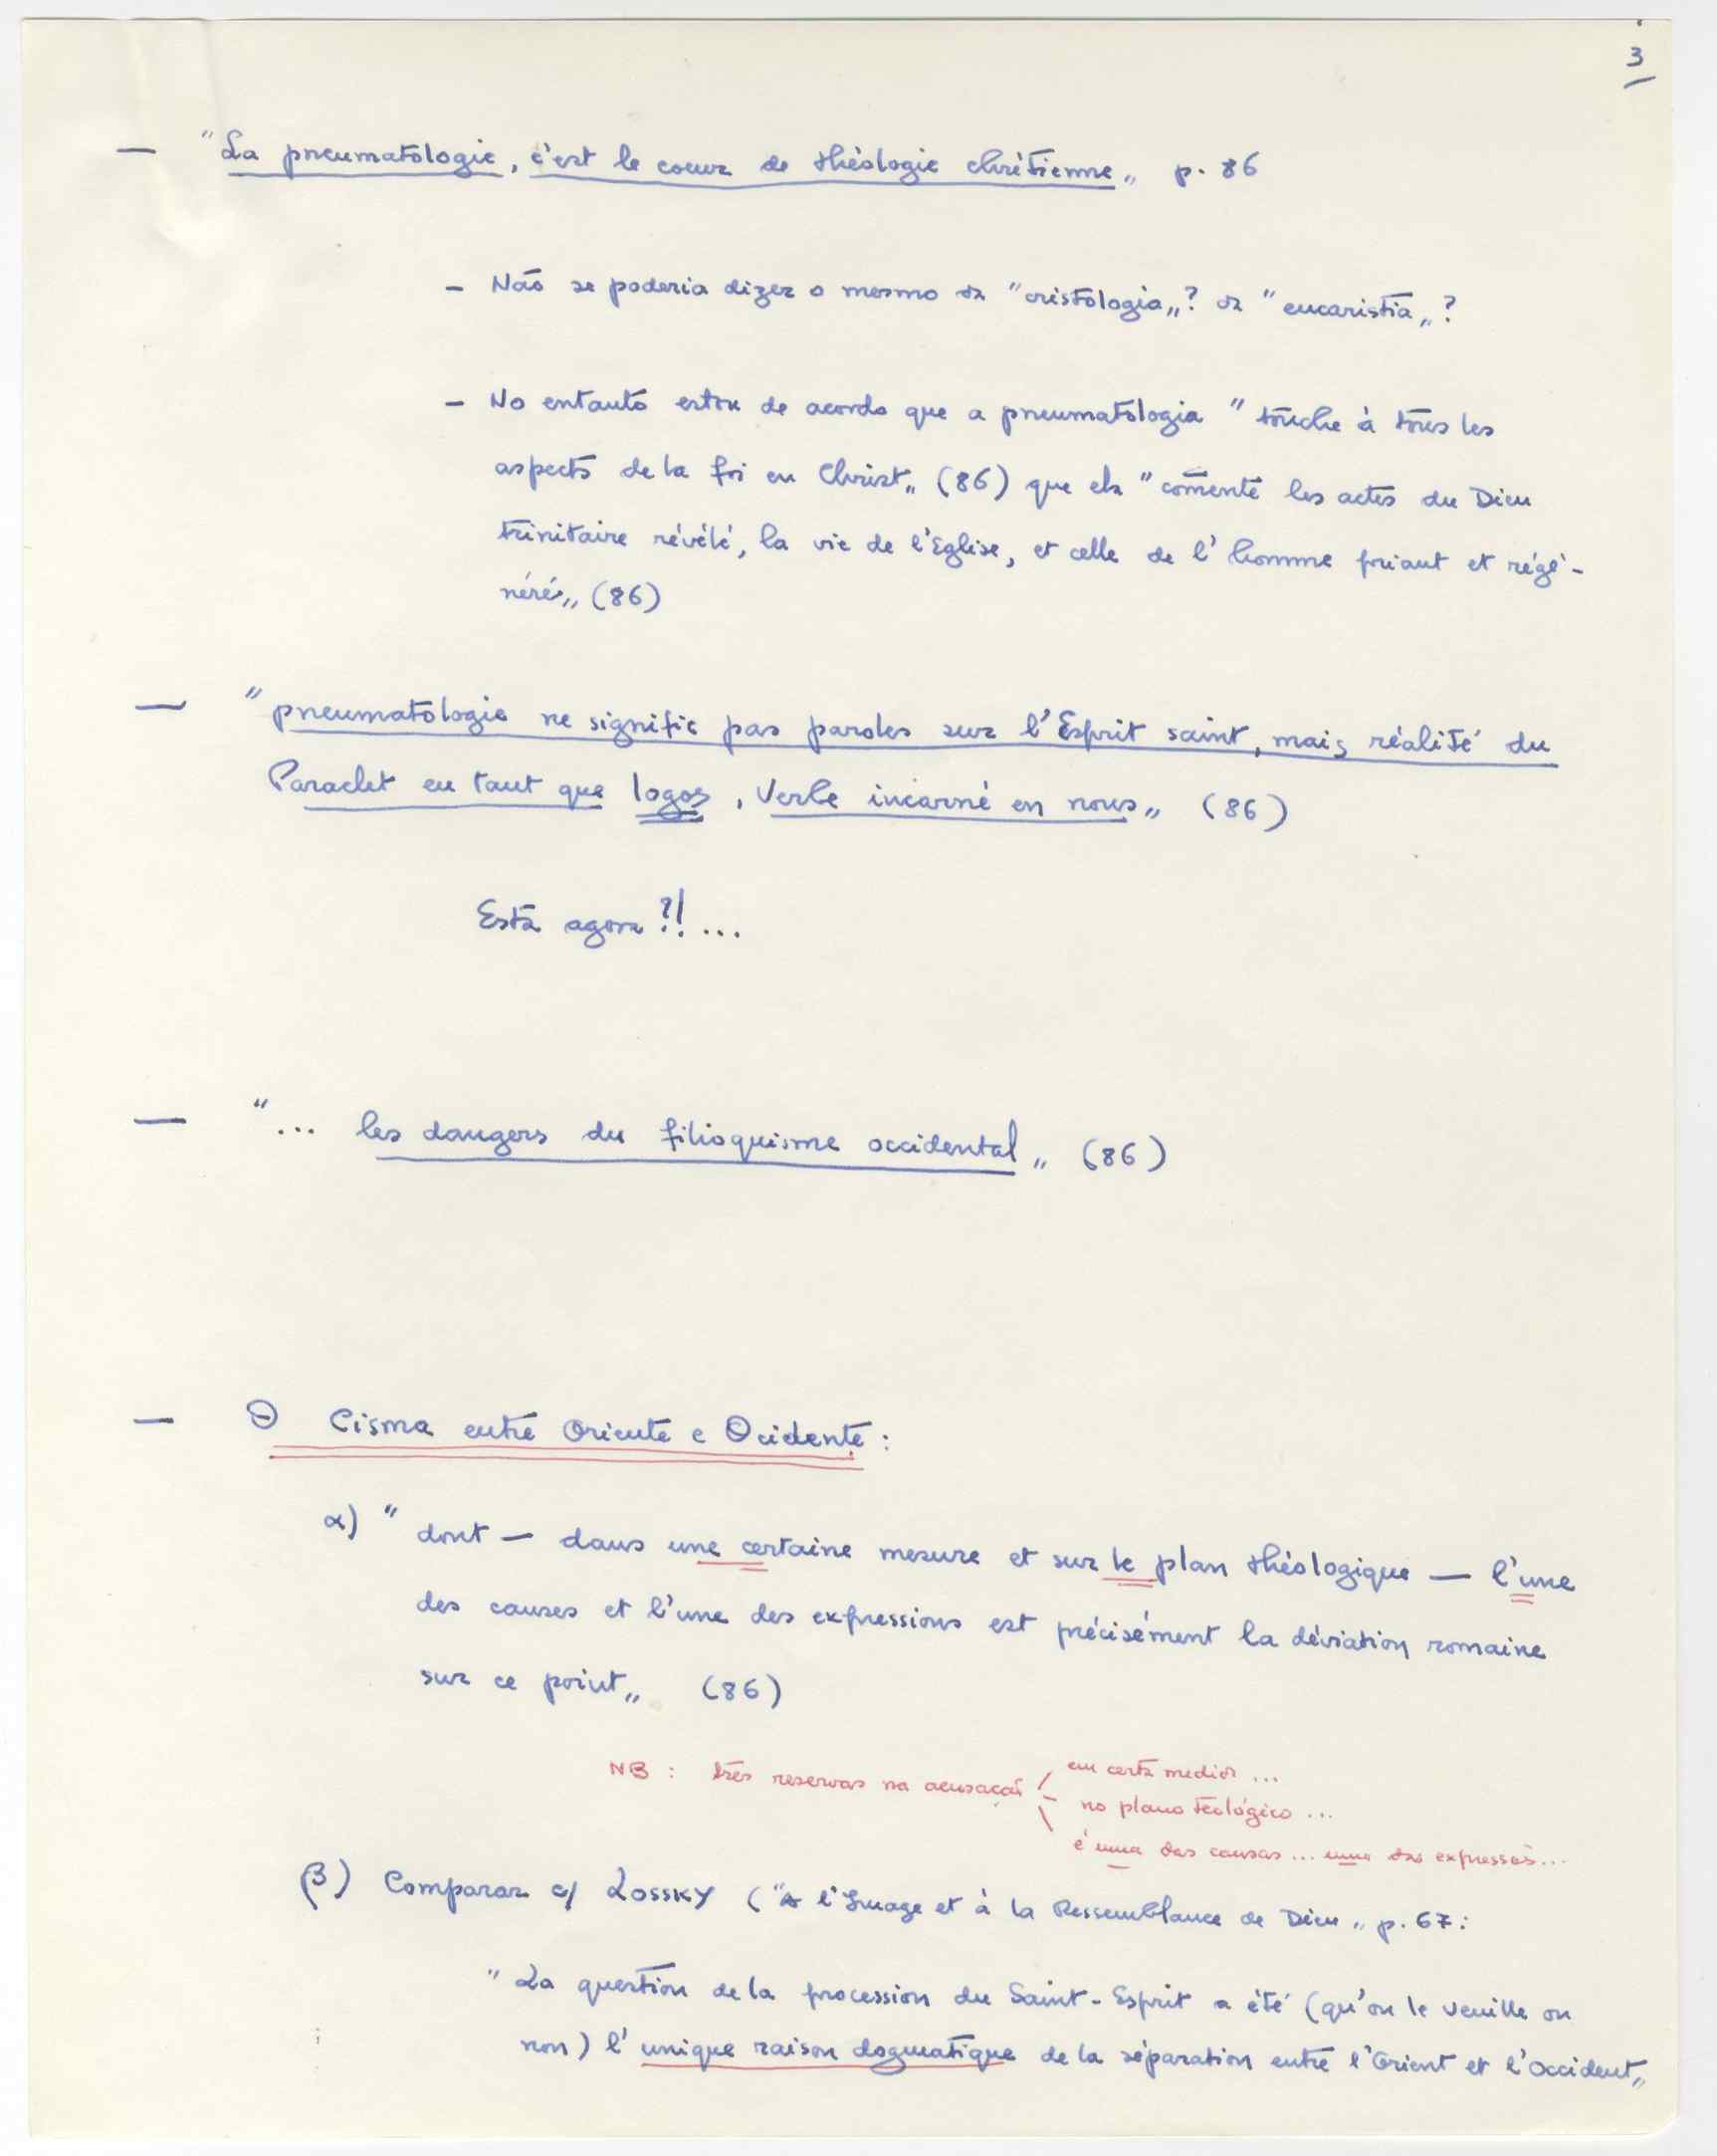 3
— "La pneumatologie, c'est le coeur de théologie chrétienne„ p. 86
- Não se poderia dizer o mesmo da "cristologia„? da "eucaristia„?
- No entanto estou de acordo que a pneumatologia "touche à tous les
aspects de la foi en Christ„ (86) que ela "comente les actes du Dieu
trinitaire révélé, la vie de l'Eglise, et celle de l'homme priant et régé-
néré„ (86)
— "pneumatologie ne signifie pas paroles sur l'Esprit saint, mais réalité du
Paraclet en tant que logos, Verbe incarné en nous„ (86)
Esta agora?!...
— "... les dangers du filioquisme occidental„ (86)
— O Cisma entre Oriente e Ocidente:
α) "dont — dans une certaine mesure et sur le plan théologique — l'une
des causes et l'une des expressions est précisément la déviation romaine
sur ce point„ (86)
NB: três reservas na acusação
em certa medida ...
no plano teológico ...
é uma das causas ... uma das expressões...
β) Comparar c/ Lossky ("A l'Image et à la Ressemblance de Dieu„ p. 67:
"La question de la procession du Saint-Esprit a été (qu'on le veuille ou
non) l'unique raison dogmatique de la séparation entre l'Orient et l'Occident„